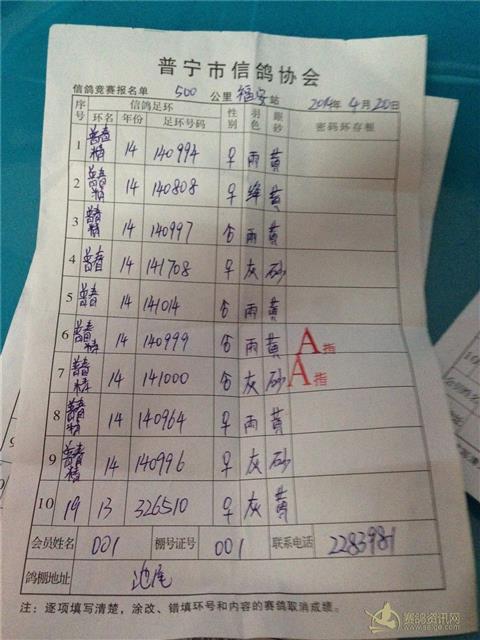 普宁市信鸽协会
信鸽竞赛报名单 500 公里 福安 站 2014年4月20日
序号 信鸽足环 性别 羽色 眼砂 密码环存根
环名 年份 足环号码
1 普精 14 140994 ♀ 雨 黄
2 普精 14 140808 ♀ 绛 黄
3 普精 14 140997 ♂ 雨 黄
4 普 14 141708 ♀ 灰 砂
5 普 14 141014 ♂ 雨 黄
6 普精 14 140999 ♂ 雨 黄 A指
7 普精 14 141000 ♂ 灰 砂 A指
8 普精 14 140964 ♀ 雨 黄
9 普精 14 140996 ♀ 灰 砂
10 19 13 326510 ♀ 灰 黄
会员姓名 001 棚号证号 001 联系电话 2283981
鸽棚地址 池尾
注：逐项填写清楚，涂改、错填环号和内容的赛鸽取消成绩。
赛鸽资讯网
www.saige.com